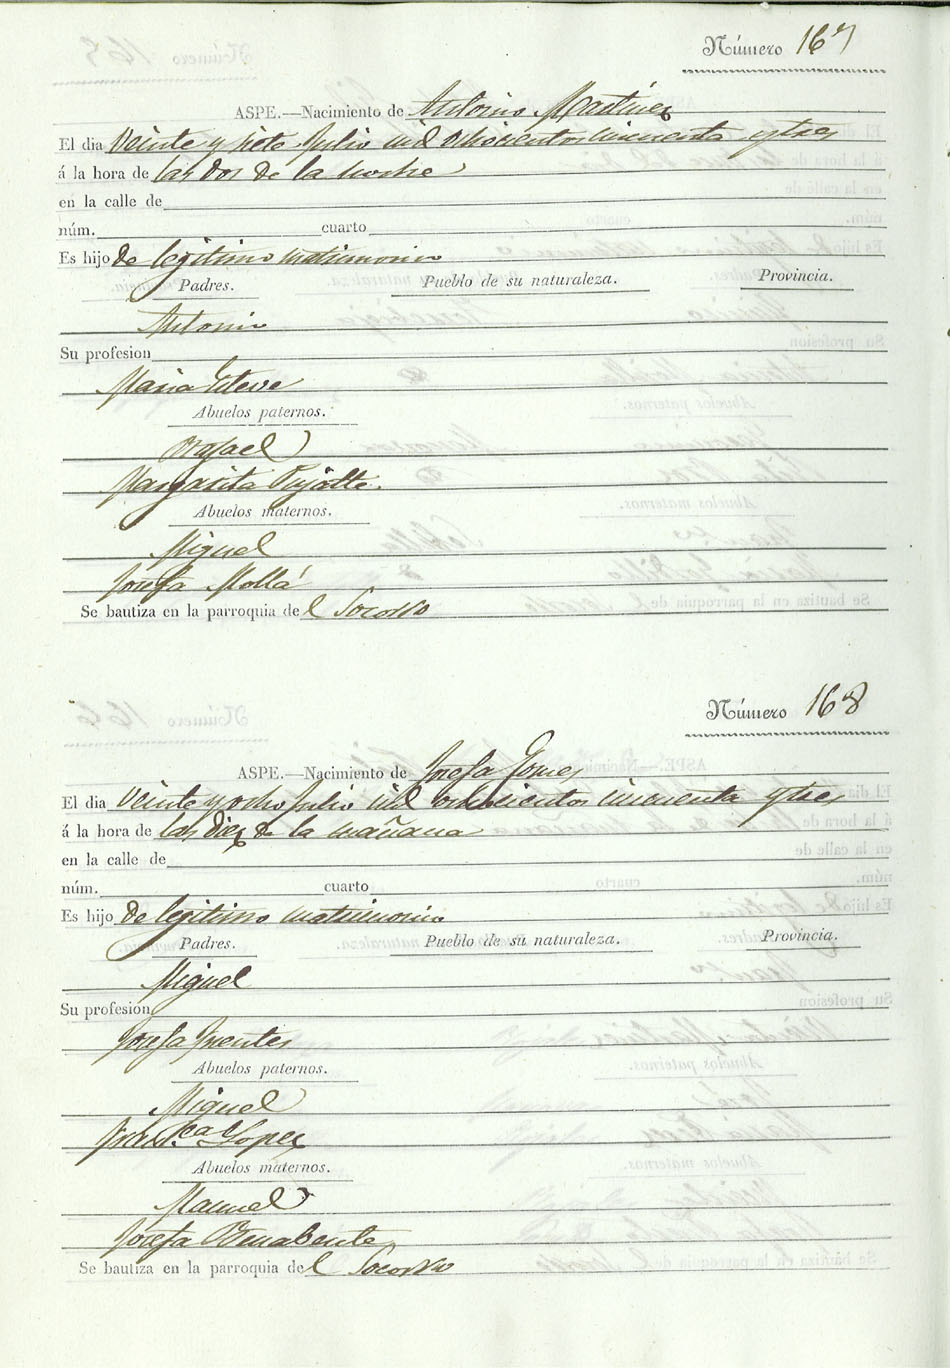 Número 167
ASPE.—Nacimiento de Antonio Martinez
El dia Veinte y siete Julio mil ochocientos cincuenta y tres
á la hora de las dos de la noche
en la calle de
núm. cuarto
Es hijo de legitimo matrimonio
Padres. Pueblo de su naturaleza. Provincia.
Antonio
Su profesion
Maria Esteve
Abuelos paternos.
Rafael
Margarita Pujalte.
Abuelos maternos.
Miguel
Josefa Mollá
Se bautiza en la parroquia de l Socorro
Número 168
ASPE.—Nacimiento de Josefa Gomez
El dia Veinte y ocho Julio mil ochocientos cincuenta y tres
á la hora de las diez de la mañana
en la calle de
núm. cuarto
Es hijo de legitimo matrimonio
Padres. Pueblo de su naturaleza. Provincia.
Miguel
Su profesion
Josefa Fuentes
Abuelos paternos.
Miguel
Fran.ca Lopez
Abuelos maternos.
Manuel
Josefa Benabente
Se bautiza en la parroquia de l Socorro